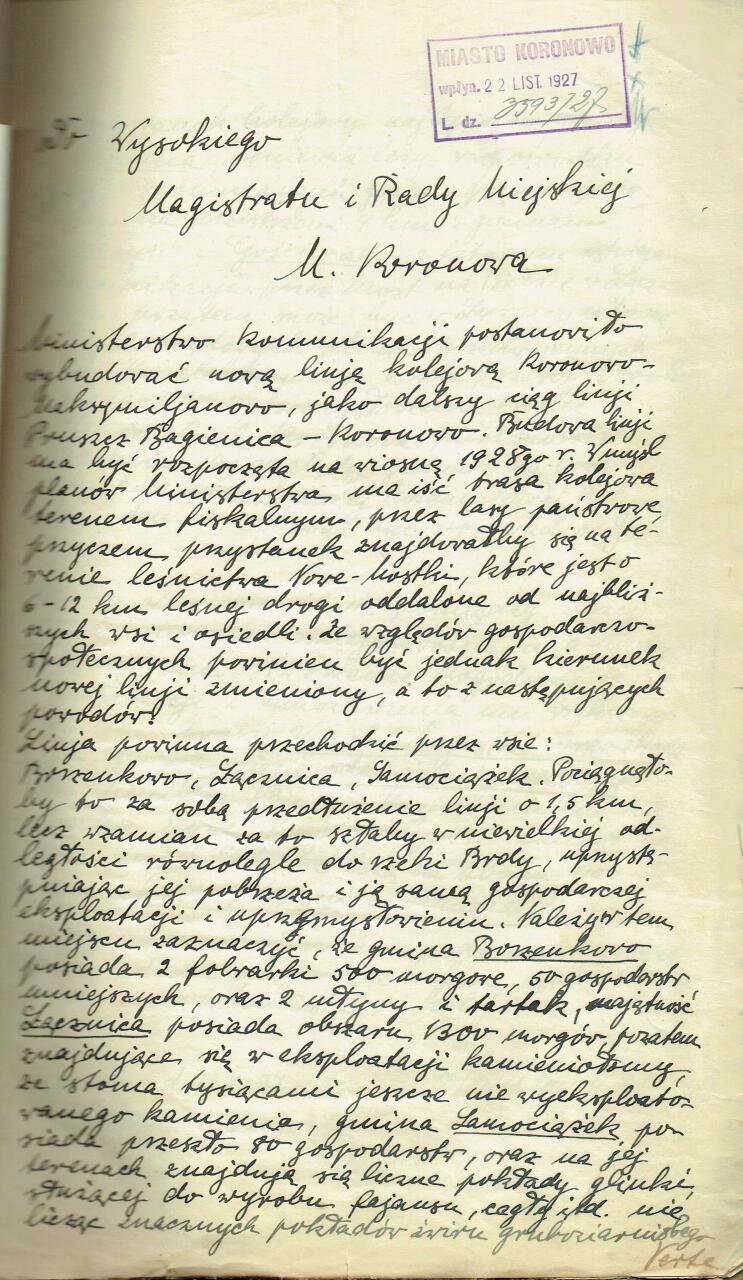 MIASTO KORONOWO
wpłyn. 22 LIST. 1927
L. dz. 3593/27
Do Wysokiego
Magistratu i Rady Miejskiej
M. Koronowa
Ministerstwo Komunikacji postanowiło
wybudować nową linją kolejową Koronowo-
Maksymiljanowo, jako dalszy ciąg linji
Pruszcz Bagienica - Koronowo. Budowa linji
ma być rozpoczęta na wiosnę 1928go r. W myśl
planów Ministerstwa ma iść trasa kolejowa
terenem fiskalnym, przez lasy państwowe
przyczem przystanek znajdowałby się na te-
renie leśnictwa Nowe-Mostki, które jest o
6-12 km leśnej drogi oddalone od najbliż-
szych wsi i osiedli. Ze względów gospodarczo-
społecznych powinien być jednak kierunek
nowej linji zmieniony, a to z następujących
powodów:
Linja powinna przechodzić przez wsie:
Bożenkowo, Łącznica, Samociążek. Pociągnęło-
by to za sobą przedłużenie linji o 1,5 km,
lecz wzamian za to szłaby w niewielkiej od-
ległości równolegle do rzeki Brdy, uprzystę-
pniając jej pobrzeża i ją samą gospodarczej
eksploatacji i uprzemysłowieniu. Należy w tem
miejscu zaznaczyć, że gmina Bożenkowo
posiada 2 folwarki 500 morgowe, 50 gospodarstw
mniejszych, oraz 2 młyny i tartak, majątność
Łącznica posiada obszaru 1300 morgów, pozatem
znajdujące się w eksploatacji kamieniołomy,
ze stoma tysiącami jeszcze nie wyeksploato-
wanego kamienia, gmina Samociążek po-
siada przeszło 80 gospodarstw, oraz na jej
terenach znajdują się liczne pokłady glinki,
służącej do wyrobu fajansu, cegły itd. nie
licząc znacznych pokładów żwiru gruboziarnistego
Verte